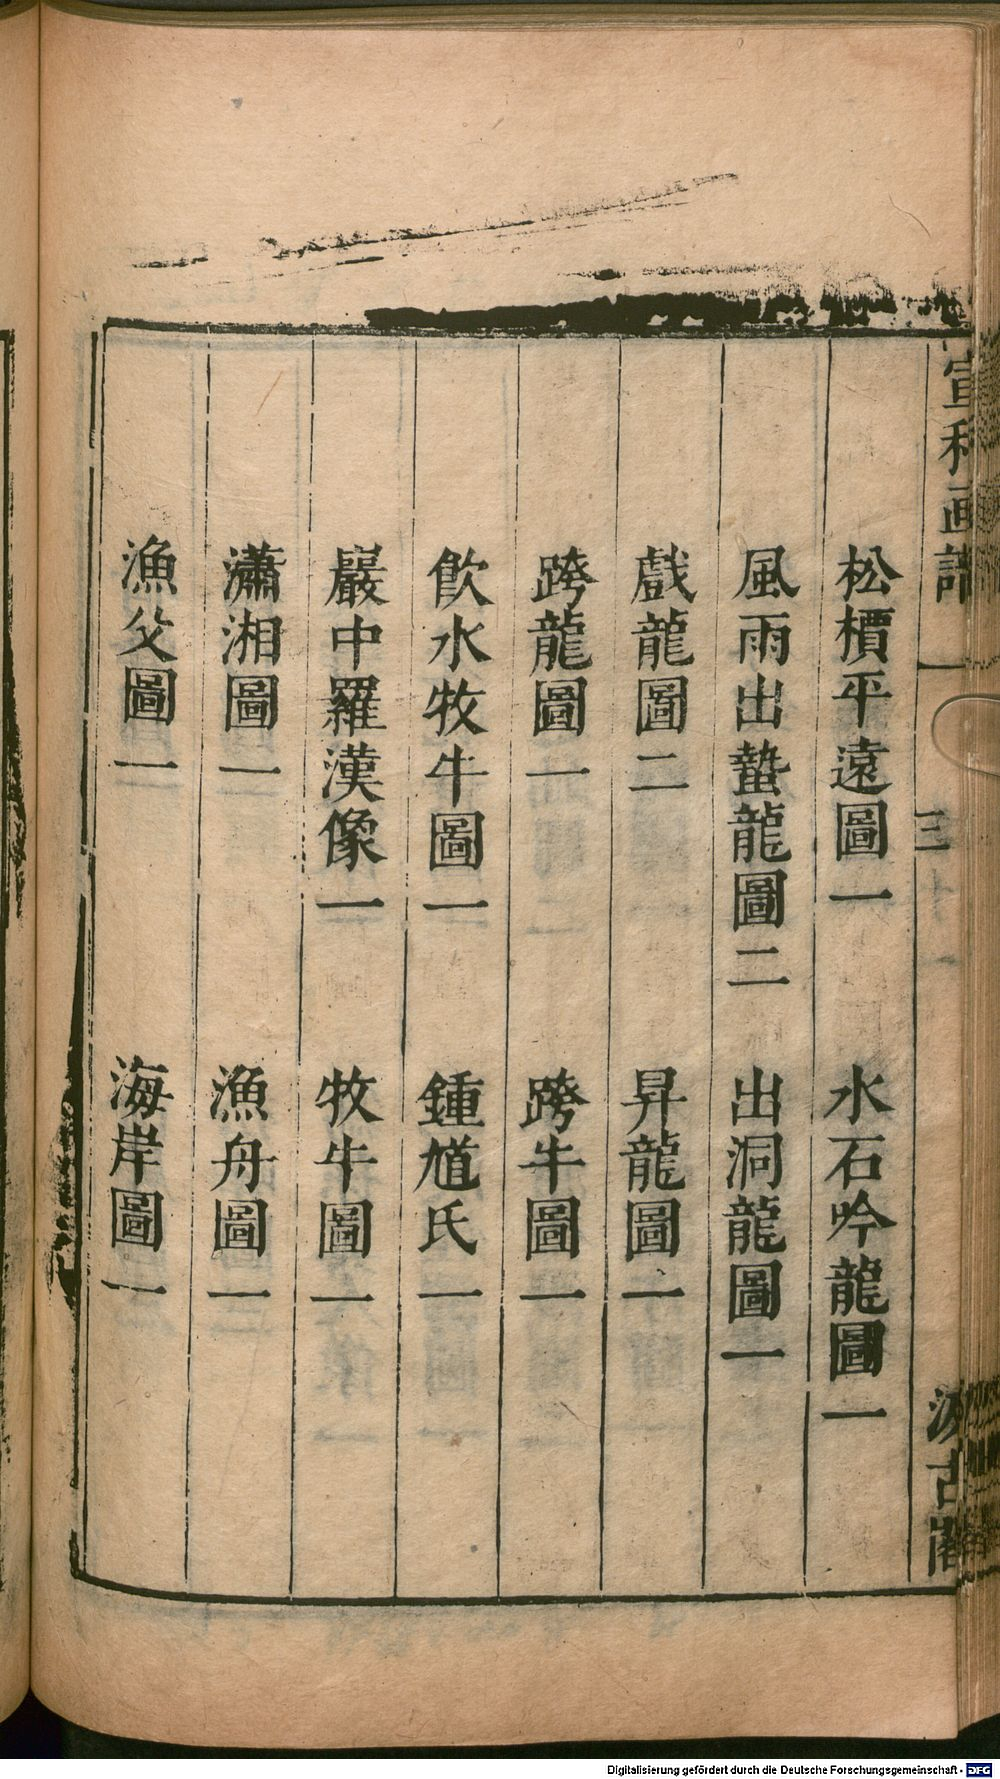 宣和画譜 一 三 汲古閣
松檟平遠圖一 水石吟龍圖一
風雨出蟄龍圖二 出洞龍圖一
戲龍圖二 昇龍圖一
跨龍圖一 跨牛圖一
飲水牧牛圖一 鍾馗氏一
巖中羅漢像一 牧牛圖一
瀟湘圖一 漁舟圖一
漁父圖一 海岸圖一
Digitalisierung gefördert durch die Deutsche Forschungsgemeinschaft - DFG